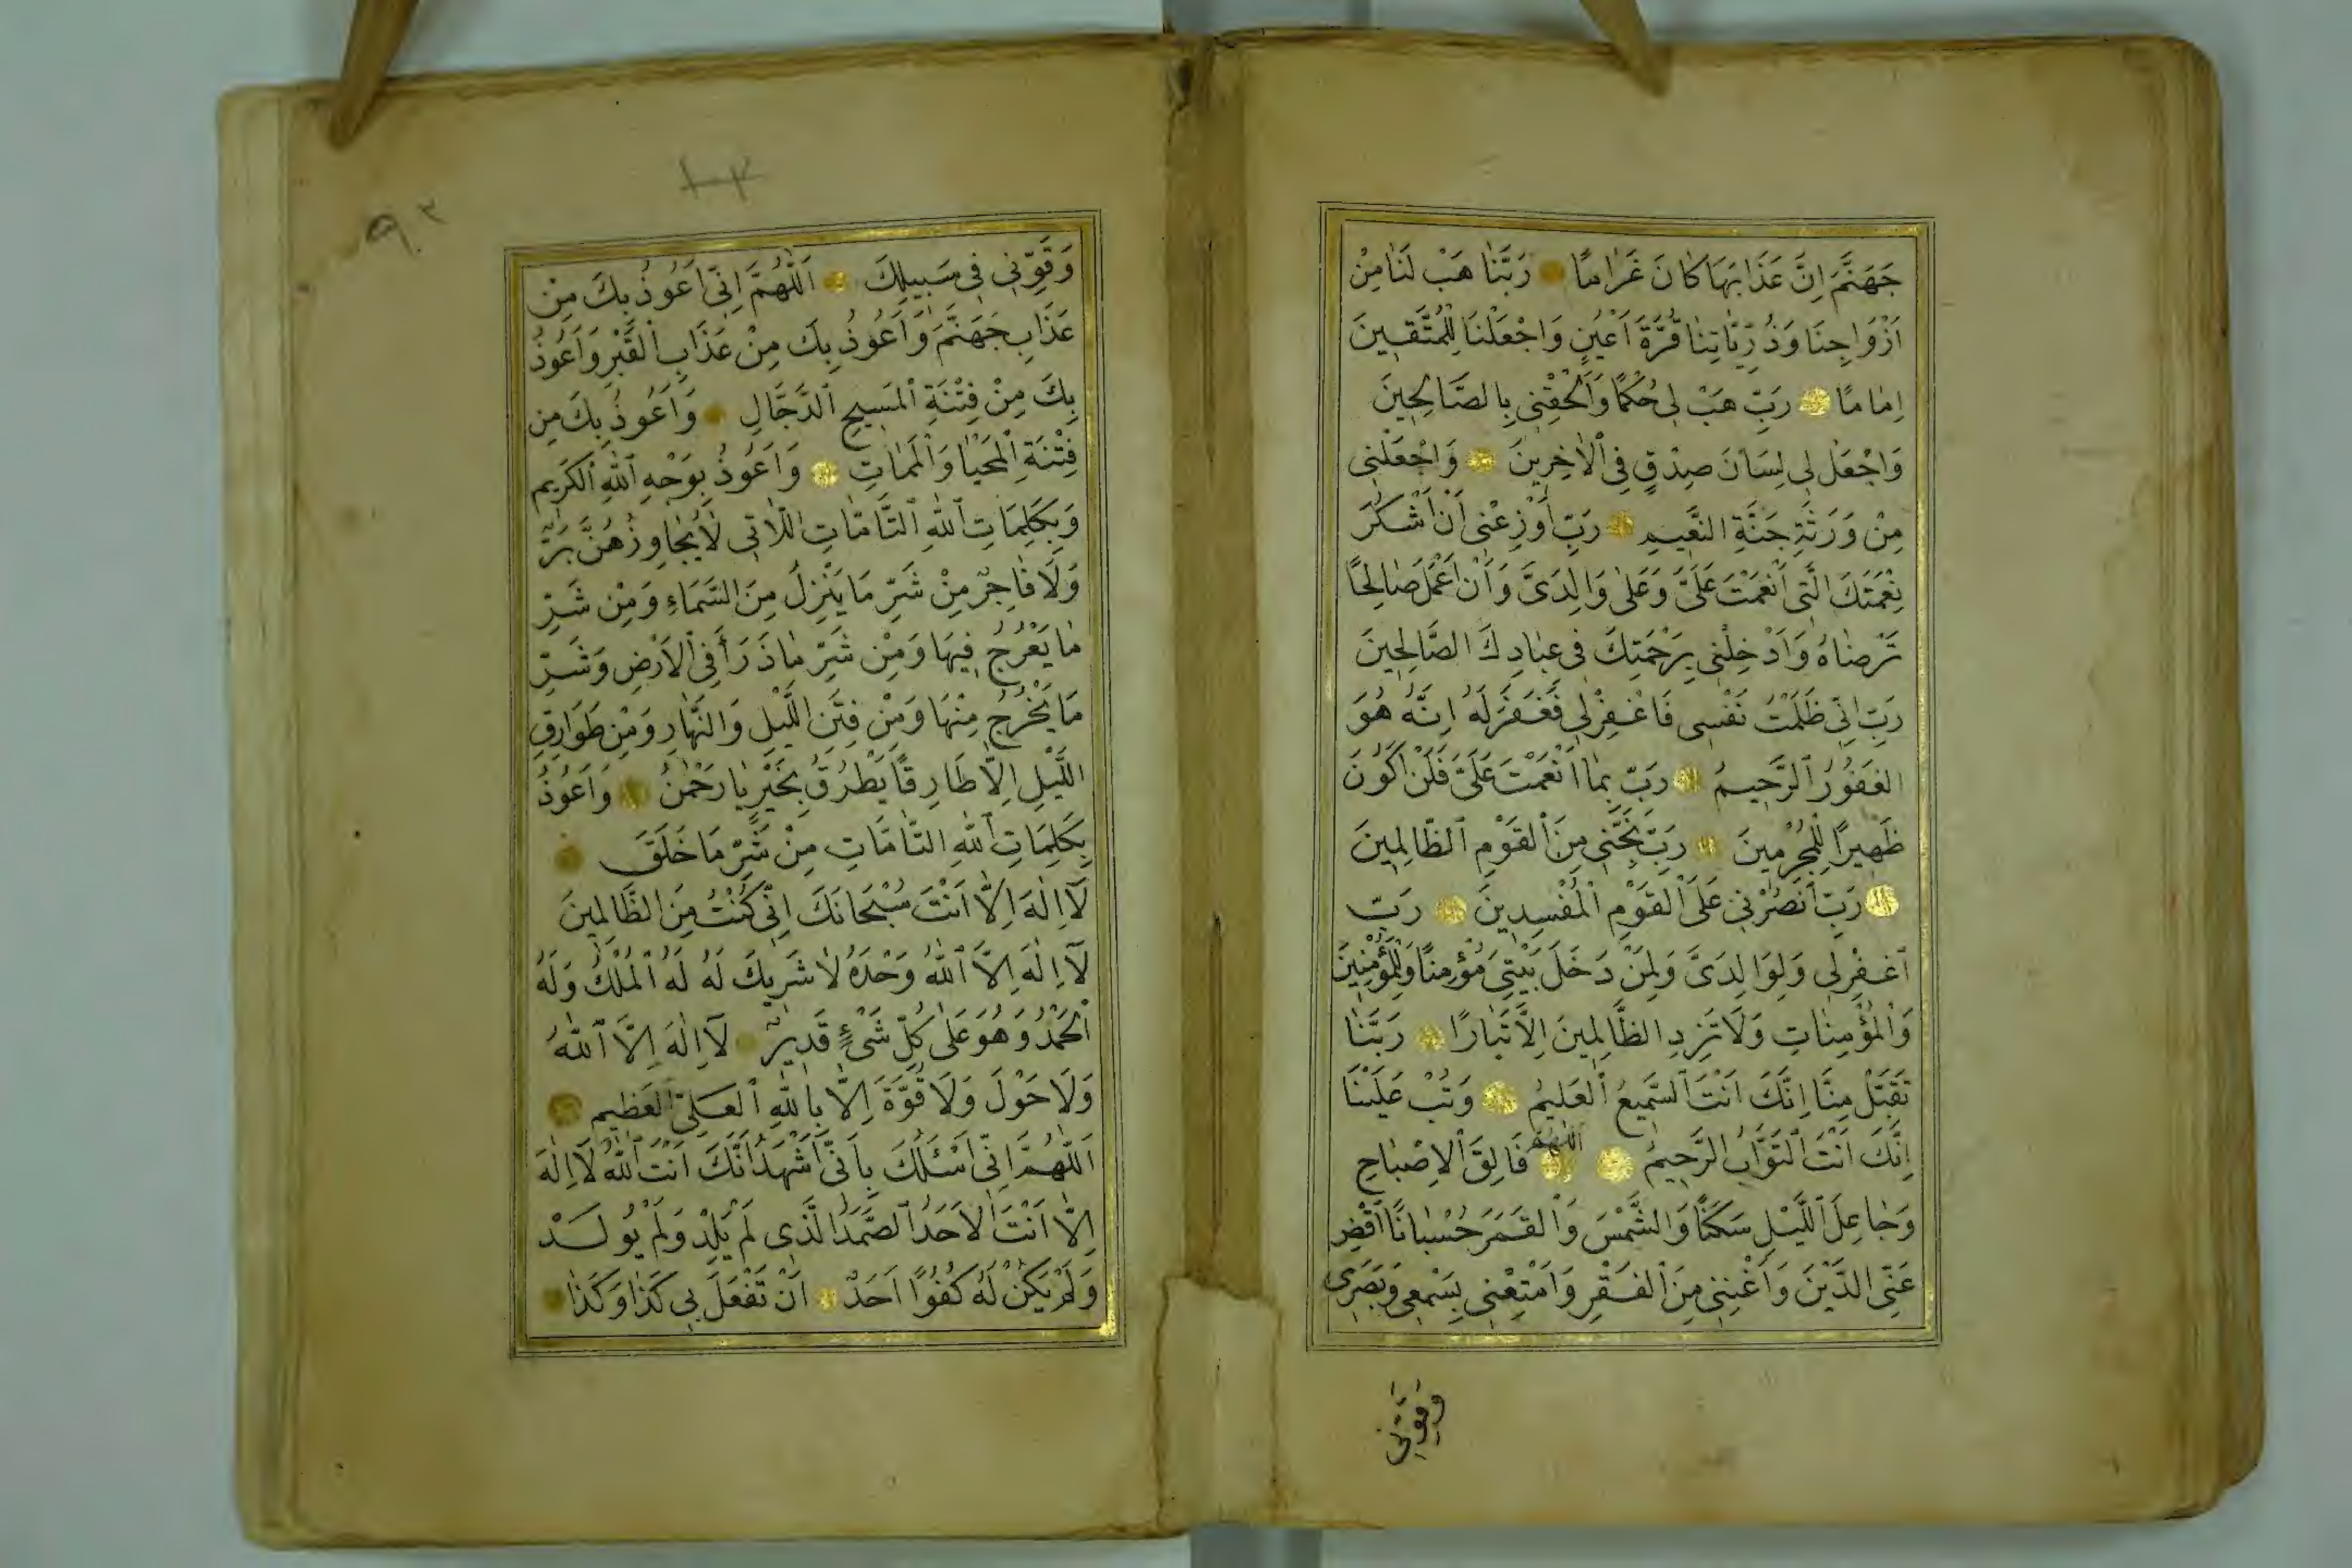 جَهَنَّمَ اِنَّ عَذَابَهَا كَانَ غَرَامًا رَبَّنَا هَبْ لَنَا مِنْ
اَزْوَاجِنَا وَذُرِّيَّاتِنَا قُرَّةَ اَعْيُنٍ وَاجْعَلْنَا لِلْمُتَّقِينَ
اِمَامًا رَبِّ هَبْ لِى حُكْمًا وَاَلْحِقْنِى بِالصَّالِحِينَ
وَاجْعَلْ لِى لِسَانَ صِدْقٍ فِى الْاٰخِرِينَ وَاجْعَلْنِى
مِنْ وَرَثَةِ جَنَّةِ النَّعِيمِ رَبِّ اَوْزِعْنِى اَنْ اَشْكُرَ
نِعْمَتَكَ الَّتِى اَنْعَمْتَ عَلَىَّ وَعَلٰى وَالِدَىَّ وَاَنْ اَعْمَلَ صَالِحًا
تَرْضَاهُ وَاَدْخِلْنِى بِرَحْمَتِكَ فِى عِبَادِكَ الصَّالِحِينَ
رَبِّ اِنِّى ظَلَمْتُ نَفْسِى فَاغْفِرْلِى فَغَفَرَ لَهُ اِنَّهُ هُوَ
الْغَفُورُ الرَّحِيمُ رَبِّ بِمَا اَنْعَمْتَ عَلَىَّ فَلَنْ اَكُونَ
ظَهِيرًا لِلْمُجْرِمِينَ رَبِّ نَجِّنِى مِنَ الْقَوْمِ الظَّالِمِينَ
رَبِّ انْصُرْنِى عَلَى الْقَوْمِ الْمُفْسِدِينَ رَبِّ
اغْفِرْلِى وَلِوَالِدَىَّ وَلِمَنْ دَخَلَ بَيْتِىَ مُؤْمِنًا وَلِلْمُؤْمِنِينَ
وَالْمُؤْمِنَاتِ وَلَا تَزِدِ الظَّالِمِينَ اِلَّا تَبَارًا رَبَّنَا
تَقَبَّلْ مِنَّا اِنَّكَ اَنْتَ السَّمِيعُ الْعَلِيمُ وَتُبْ عَلَيْنَا
اِنَّكَ اَنْتَ التَّوَّابُ الرَّحِيمُ اَللّٰهُمَّ فَالِقَ الْاِصْبَاحِ
وَجَاعِلَ اللَّيْلِ سَكَنًا وَالشَّمْسَ وَالْقَمَرَ حُسْبَانًا اَقْضِ
عَنِّى الدَّيْنَ وَاَغْنِنِى مِنَ الْفَقْرِ وَاَمْتِعْنِى بِسَمْعِى وَبَصَرِى
وَقَوِّنِى
٩٠٢
وَقَوِّنِى فِى سَبِيلِكَ اَللّٰهُمَّ اِنِّى اَعُوذُ بِكَ مِنْ
عَذَابِ جَهَنَّمَ وَاَعُوذُ بِكَ مِنْ عَذَابِ الْقَبْرِ وَاَعُوذُ
بِكَ مِنْ فِتْنَةِ الْمَسِيحِ الدَّجَّالِ وَاَعُوذُ بِكَ مِنْ
فِتْنَةِ الْمَحْيَا وَالْمَمَاتِ وَاَعُوذُ بِوَجْهِ اللّٰهِ الْكَرِيمِ
وَبِكَلِمَاتِ اللّٰهِ التَّامَّاتِ اللَّاتِى لَا يُجَاوِزُهُنَّ بَرٌّ
وَلَا فَاجِرٌ مِنْ شَرِّ مَا يَنْزِلُ مِنَ السَّمَاءِ وَمِنْ شَرِّ
مَا يَعْرُجُ فِيهَا وَمِنْ شَرِّ مَا ذَرَأَ فِى الْاَرْضِ وَشَرِّ
مَا يَخْرُجُ مِنْهَا وَمِنْ فِتَنِ اللَّيْلِ وَالنَّهَارِ وَمِنْ طَوَارِقِ
اللَّيْلِ اِلَّا طَارِقًا يَطْرُقُ بِخَيْرٍ يَا رَحْمٰنُ وَاَعُوذُ
بِكَلِمَاتِ اللّٰهِ التَّامَّاتِ مِنْ شَرِّ مَا خَلَقَ
لَآ اِلٰهَ اِلَّا اَنْتَ سُبْحَانَكَ اِنِّى كُنْتُ مِنَ الظَّالِمِينَ
لَآ اِلٰهَ اِلَّا اللّٰهُ وَحْدَهُ لَا شَرِيكَ لَهُ لَهُ الْمُلْكُ وَلَهُ
الْحَمْدُ وَهُوَ عَلٰى كُلِّ شَىْءٍ قَدِيرٌ لَآ اِلٰهَ اِلَّا اللّٰهُ
وَلَا حَوْلَ وَلَا قُوَّةَ اِلَّا بِاللّٰهِ الْعَلِىِّ الْعَظِيمِ
اَللّٰهُمَّ اِنِّى اَسْئَلُكَ بِاَنِّى اَشْهَدُ اَنَّكَ اَنْتَ اللّٰهُ لَآ اِلٰهَ
اِلَّا اَنْتَ الْاَحَدُ الصَّمَدُ الَّذِى لَمْ يَلِدْ وَلَمْ يُولَدْ
وَلَمْ يَكُنْ لَهُ كُفُوًا اَحَدٌ اَنْ تَفْعَلَ بِى كَذَا وَكَذَا